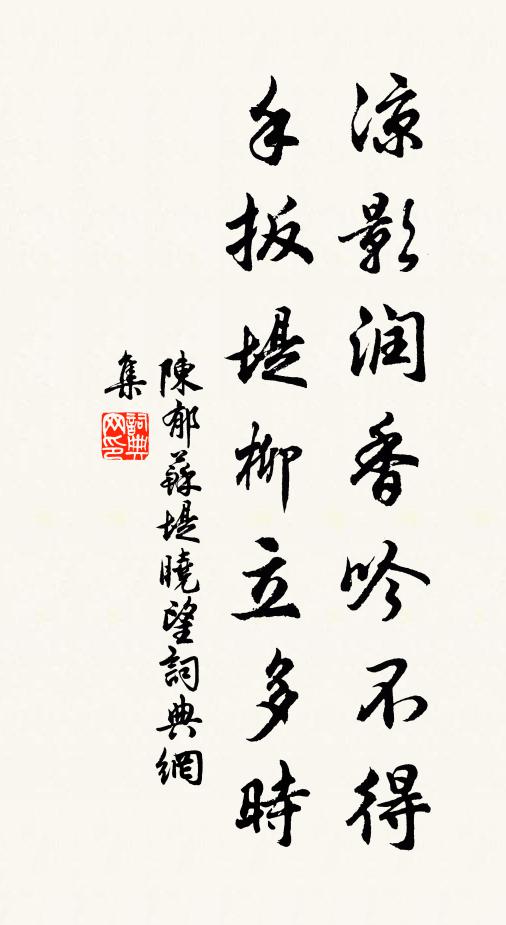 凉影润香吟不得
手扳堤柳立多時
陳郁蘇堤曉望詞典網
集
詞典网印